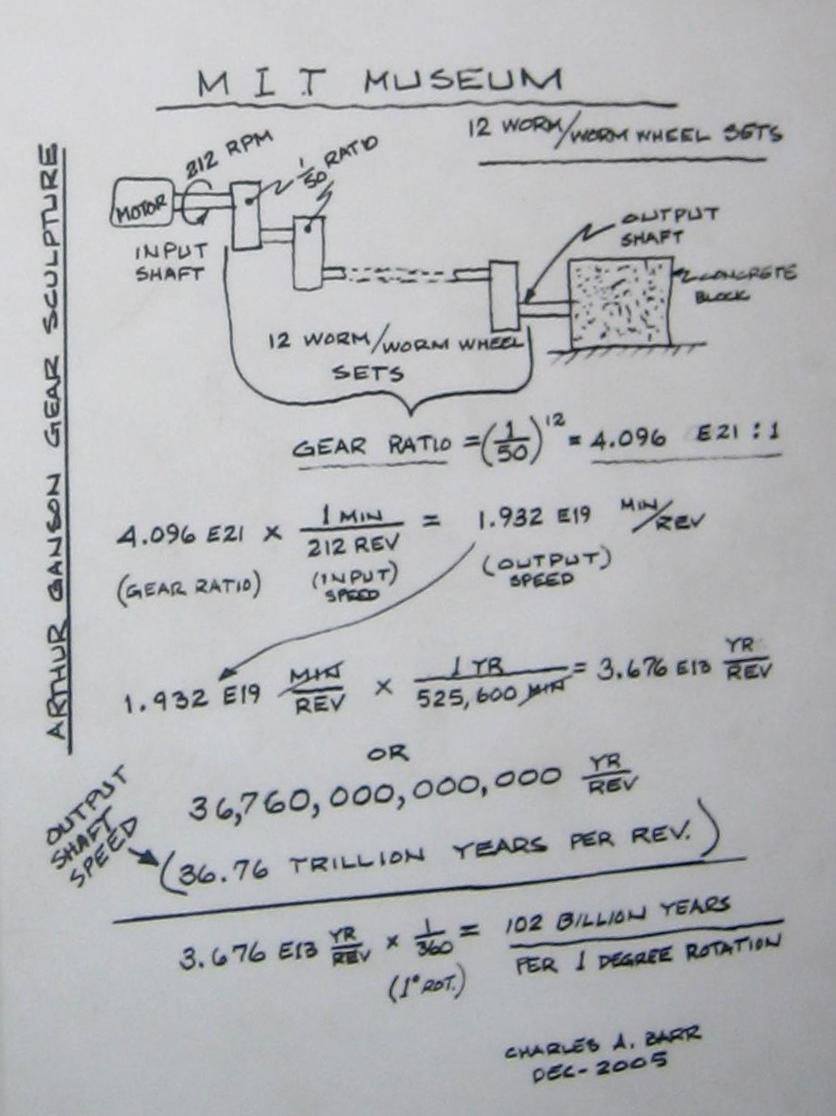 MIT MUSEUM
12 WORM/WORM WHEEL SETS
ARTHUR GANSON GEAR SCULPTURE
212 RPM
1/50 RATIO
MOTOR
INPUT
SHAFT
OUTPUT
SHAFT
CONCRETE
BLOCK
12 WORM/WORM WHEEL
SETS
GEAR RATIO = (1/50)^12 = 4.096 E21 : 1
4.096 E21 × 1 MIN/212 REV = 1.932 E19 MIN/REV
(GEAR RATIO) (INPUT) SPEED (OUTPUT) SPEED
1.932 E19 MIN/REV × 1 YR/525,600 MIN = 3.676 E13 YR/REV
OR
36,760,000,000,000 YR/REV
OUTPUT
SHAFT
SPEED
(36.76 TRILLION YEARS PER REV.)
3.676 E13 YR/REV × 1/360 = 102 BILLION YEARS
PER 1 DEGREE ROTATION
(1° ROT.)
CHARLES A. BARR
DEC-2005